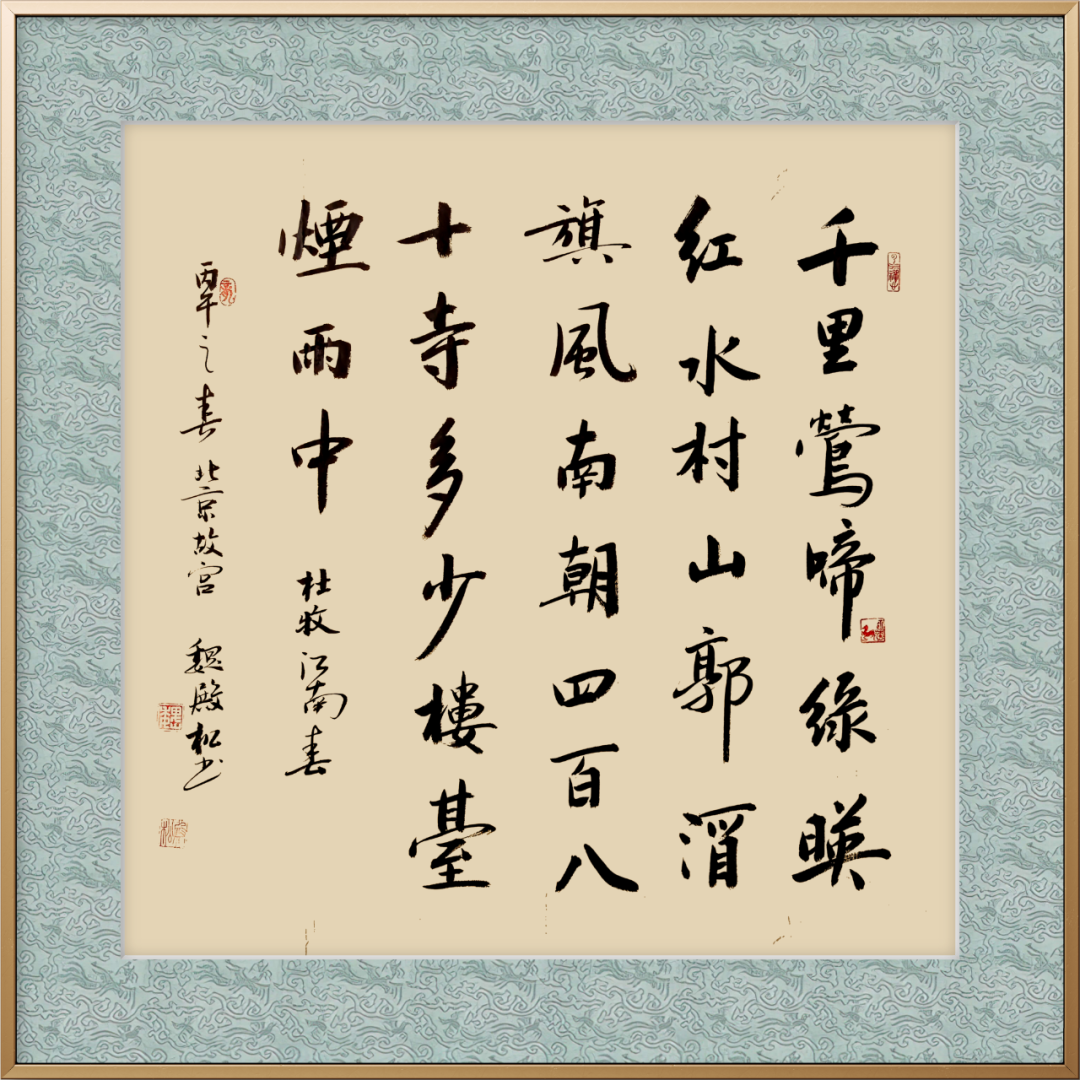 千里鶯啼绿暎
红水村山郭酒
旗風南朝四百八
十寺多少樓臺
煙雨中 杜牧江南春
丙午之春 北京故宫 魏殿松书